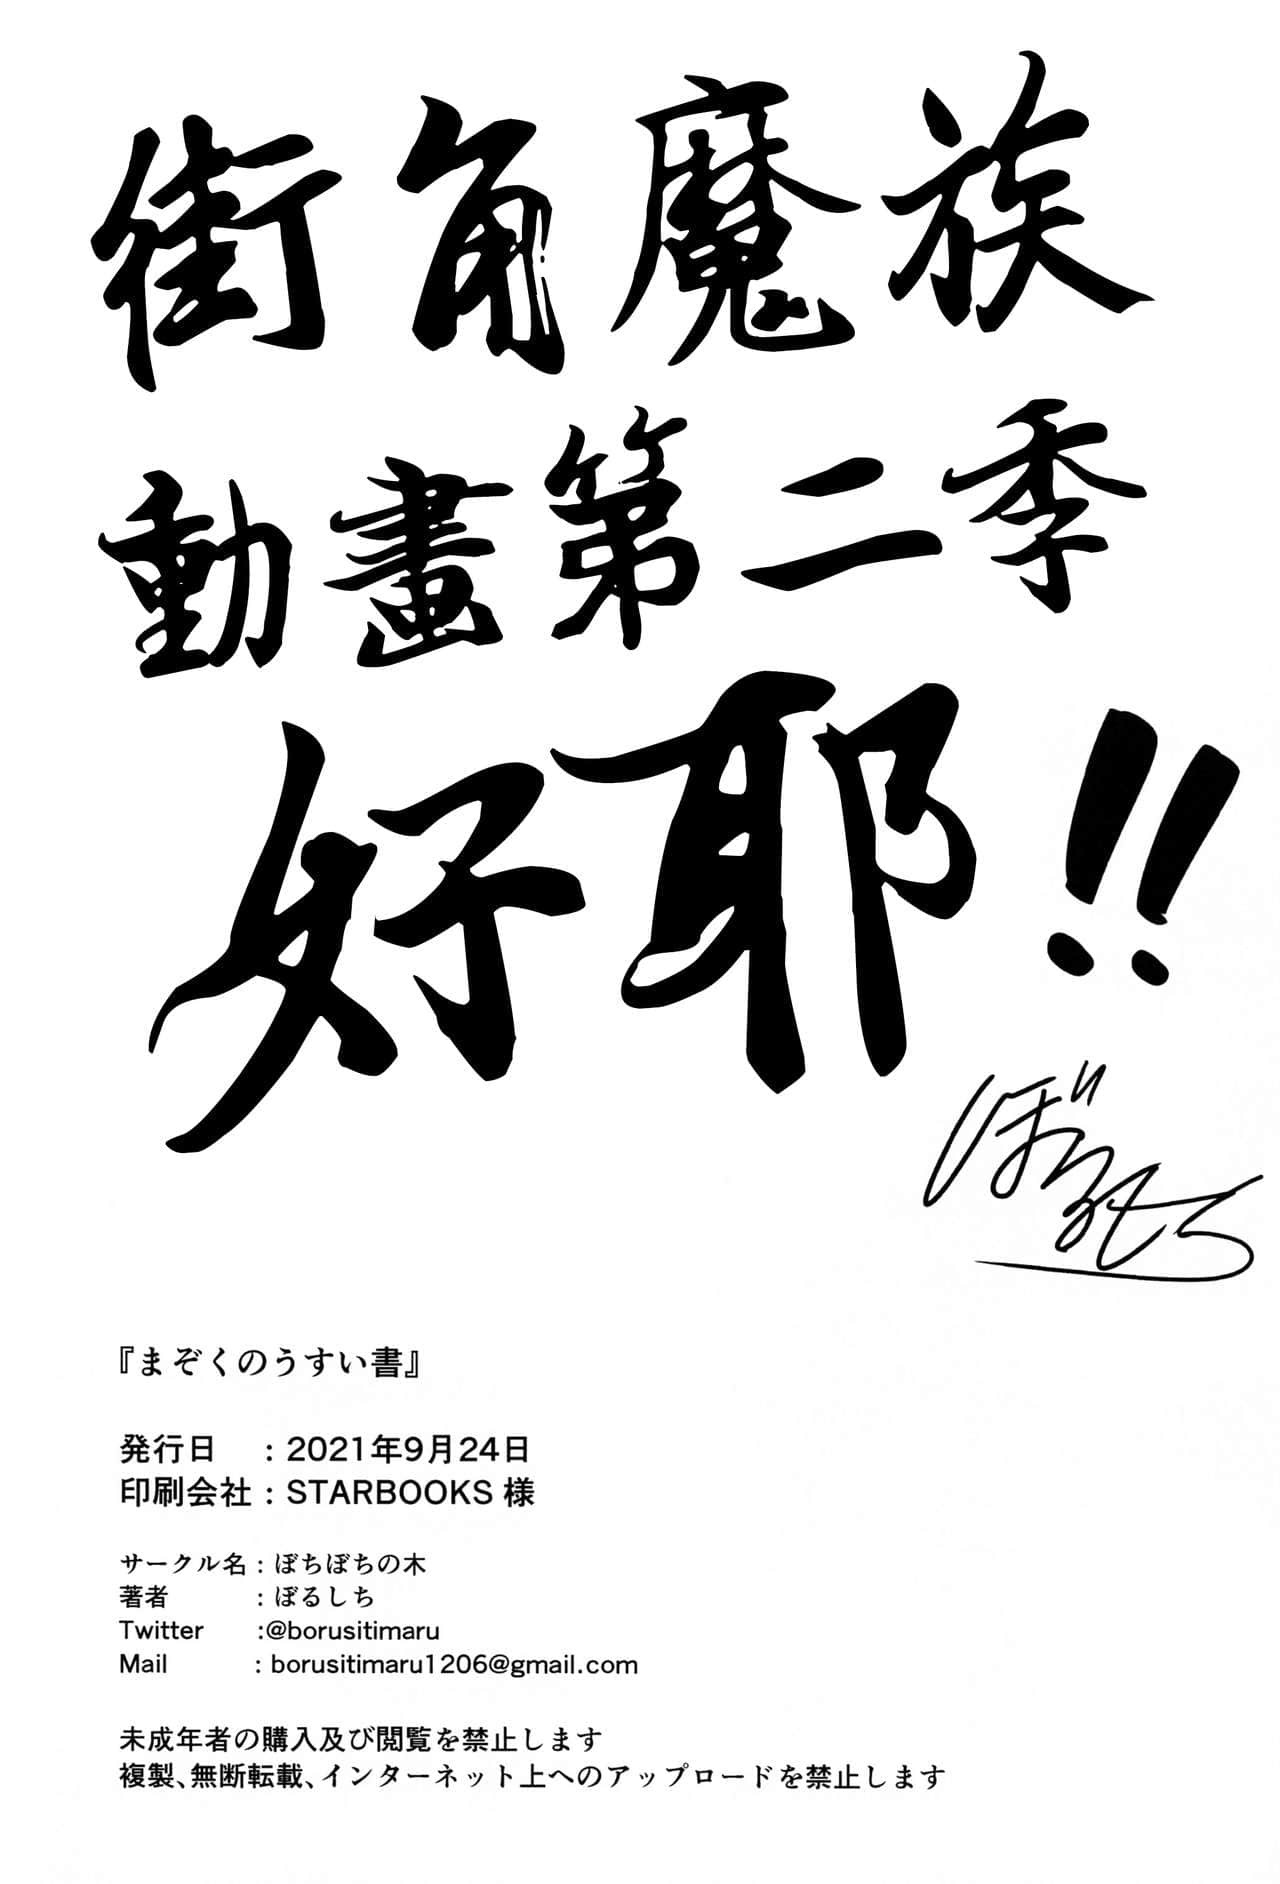 街角魔族
動畫第二季
好耶!!
ぼるしち
『まぞくのうすい書』
発行日 : 2021年9月24日
印刷会社 : STARBOOKS 様
サークル名 : ぼちぼちの木
著者 : ぼるしち
Twitter :@borusitimaru
Mail : borusitimaru1206@gmail.com
未成年者の購入及び閲覧を禁止します
複製、無断転載、インターネット上へのアップロードを禁止します